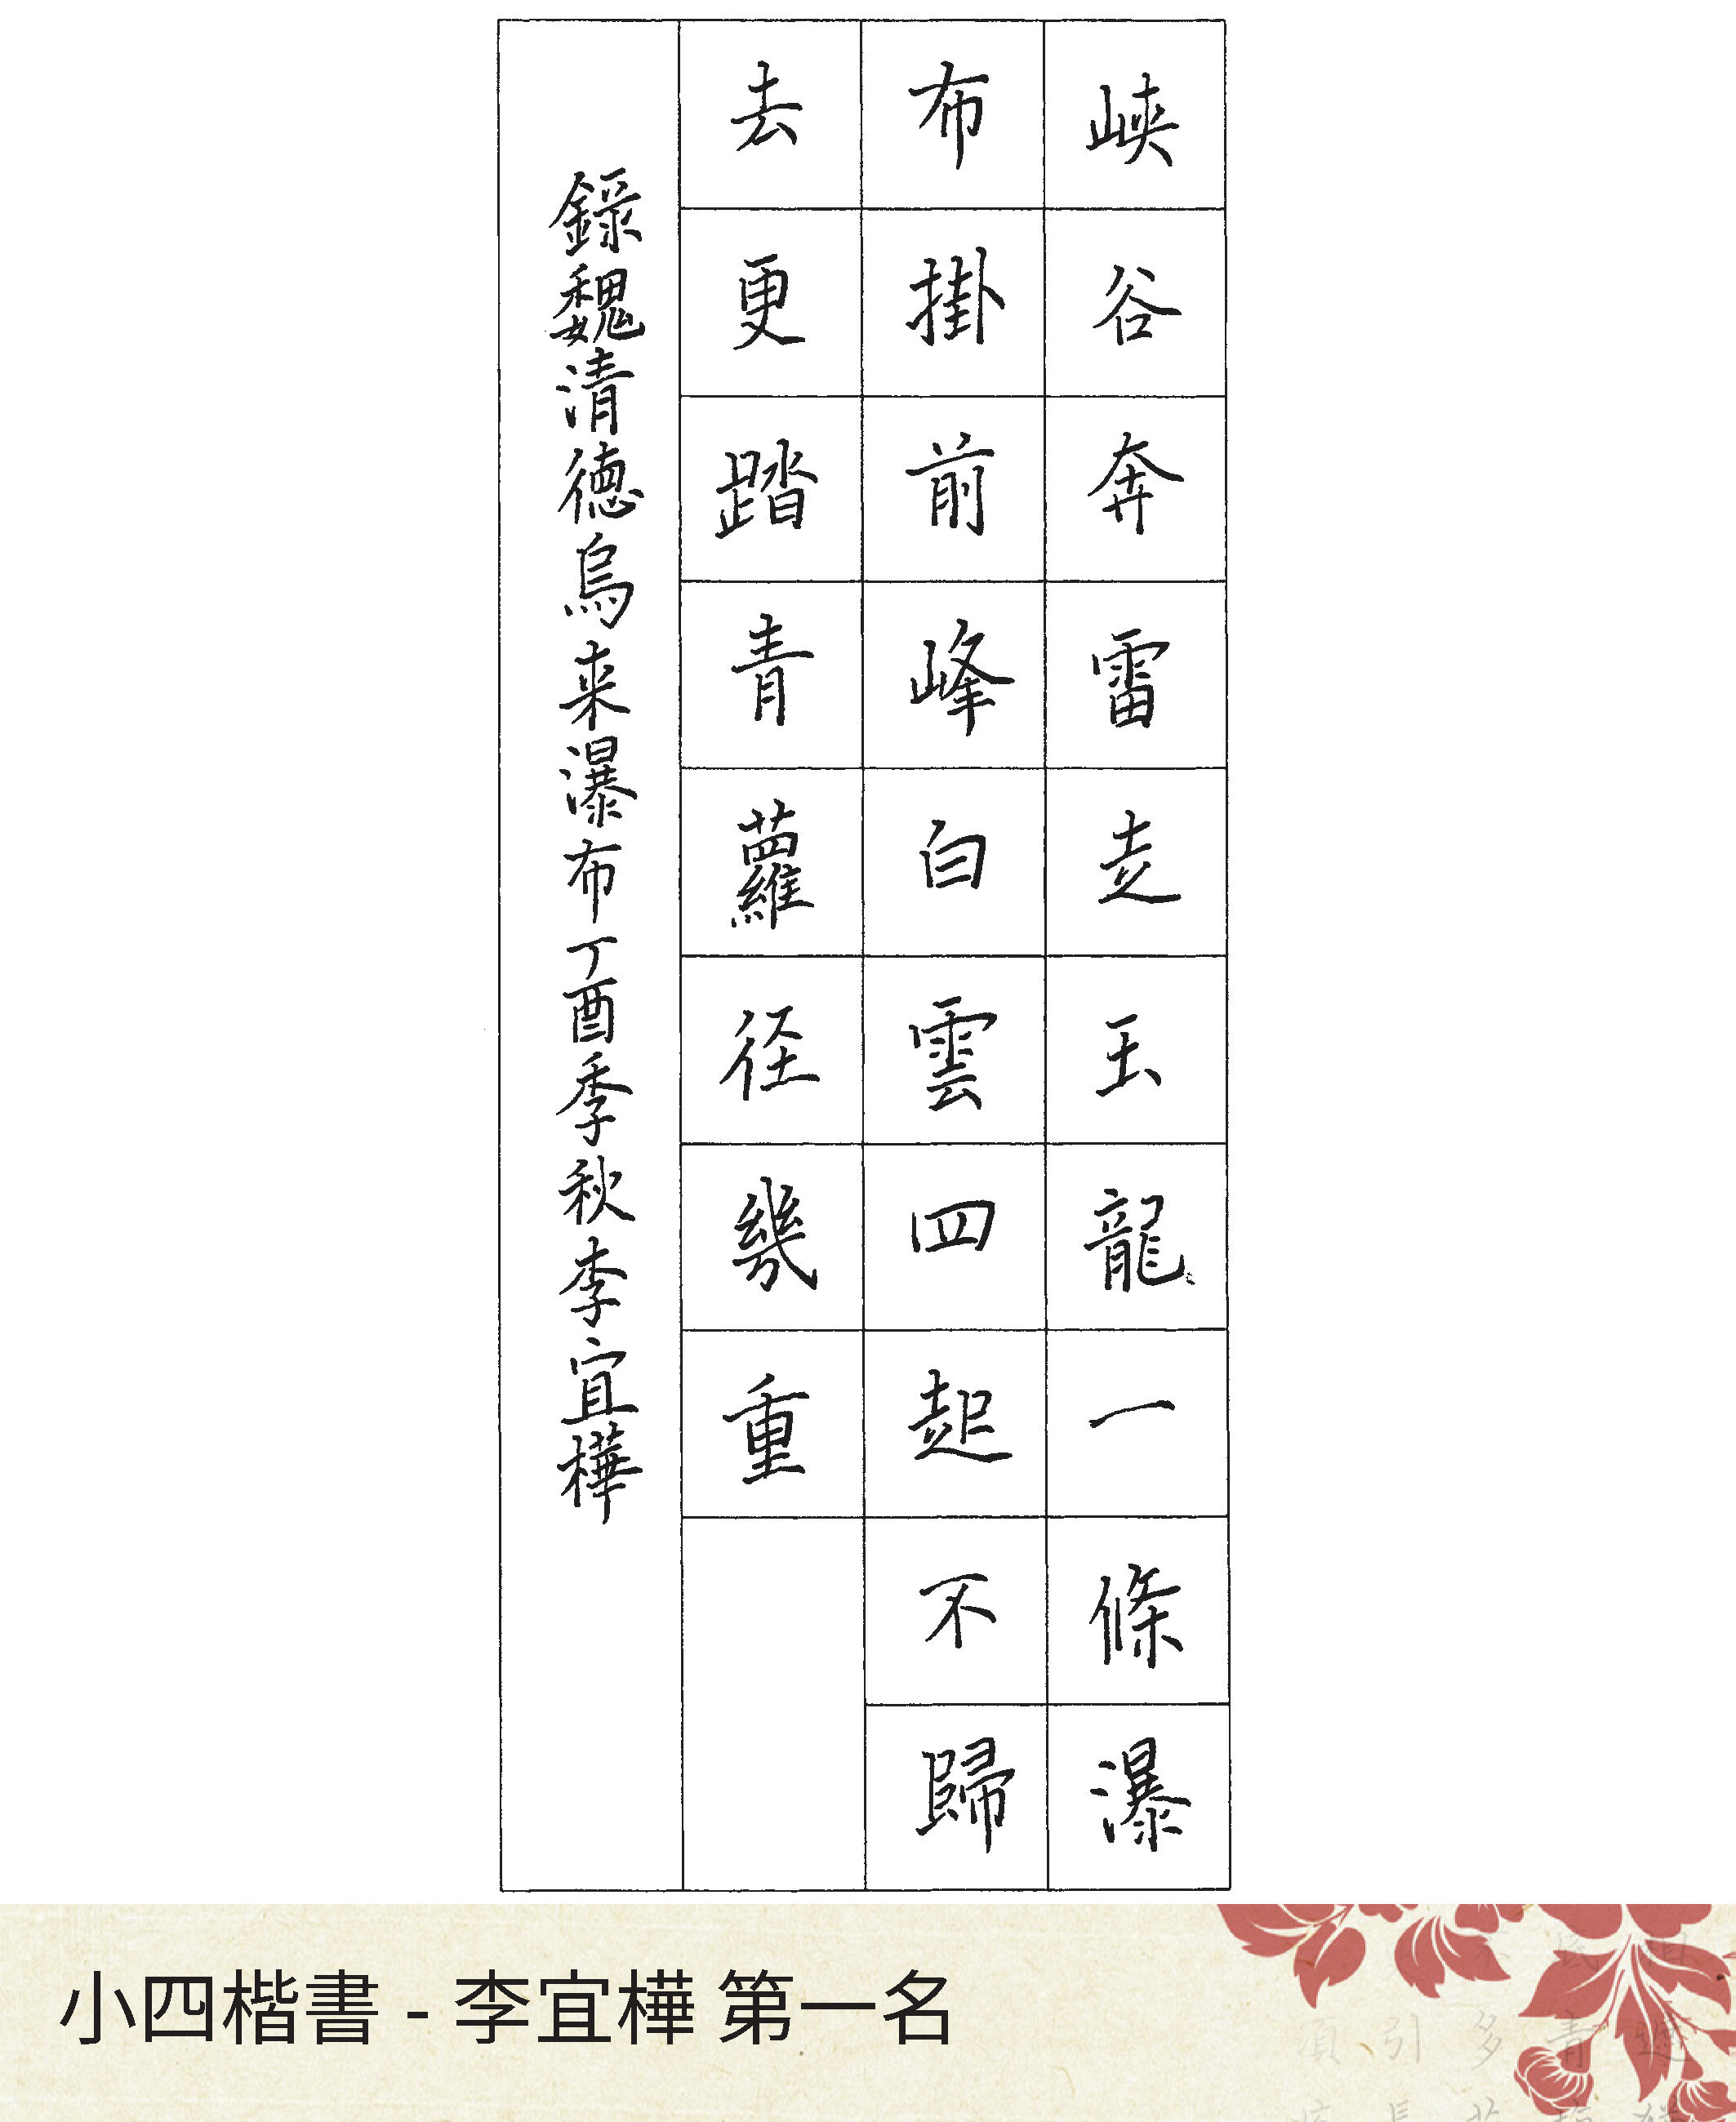 峽谷奔雷走玉龍一條瀑
布掛前峰白雲四起不歸
去更踏青蘿径幾重
錄魏清德烏来瀑布丁酉季秋李宜樺
小四楷書 - 李宜樺 第一名